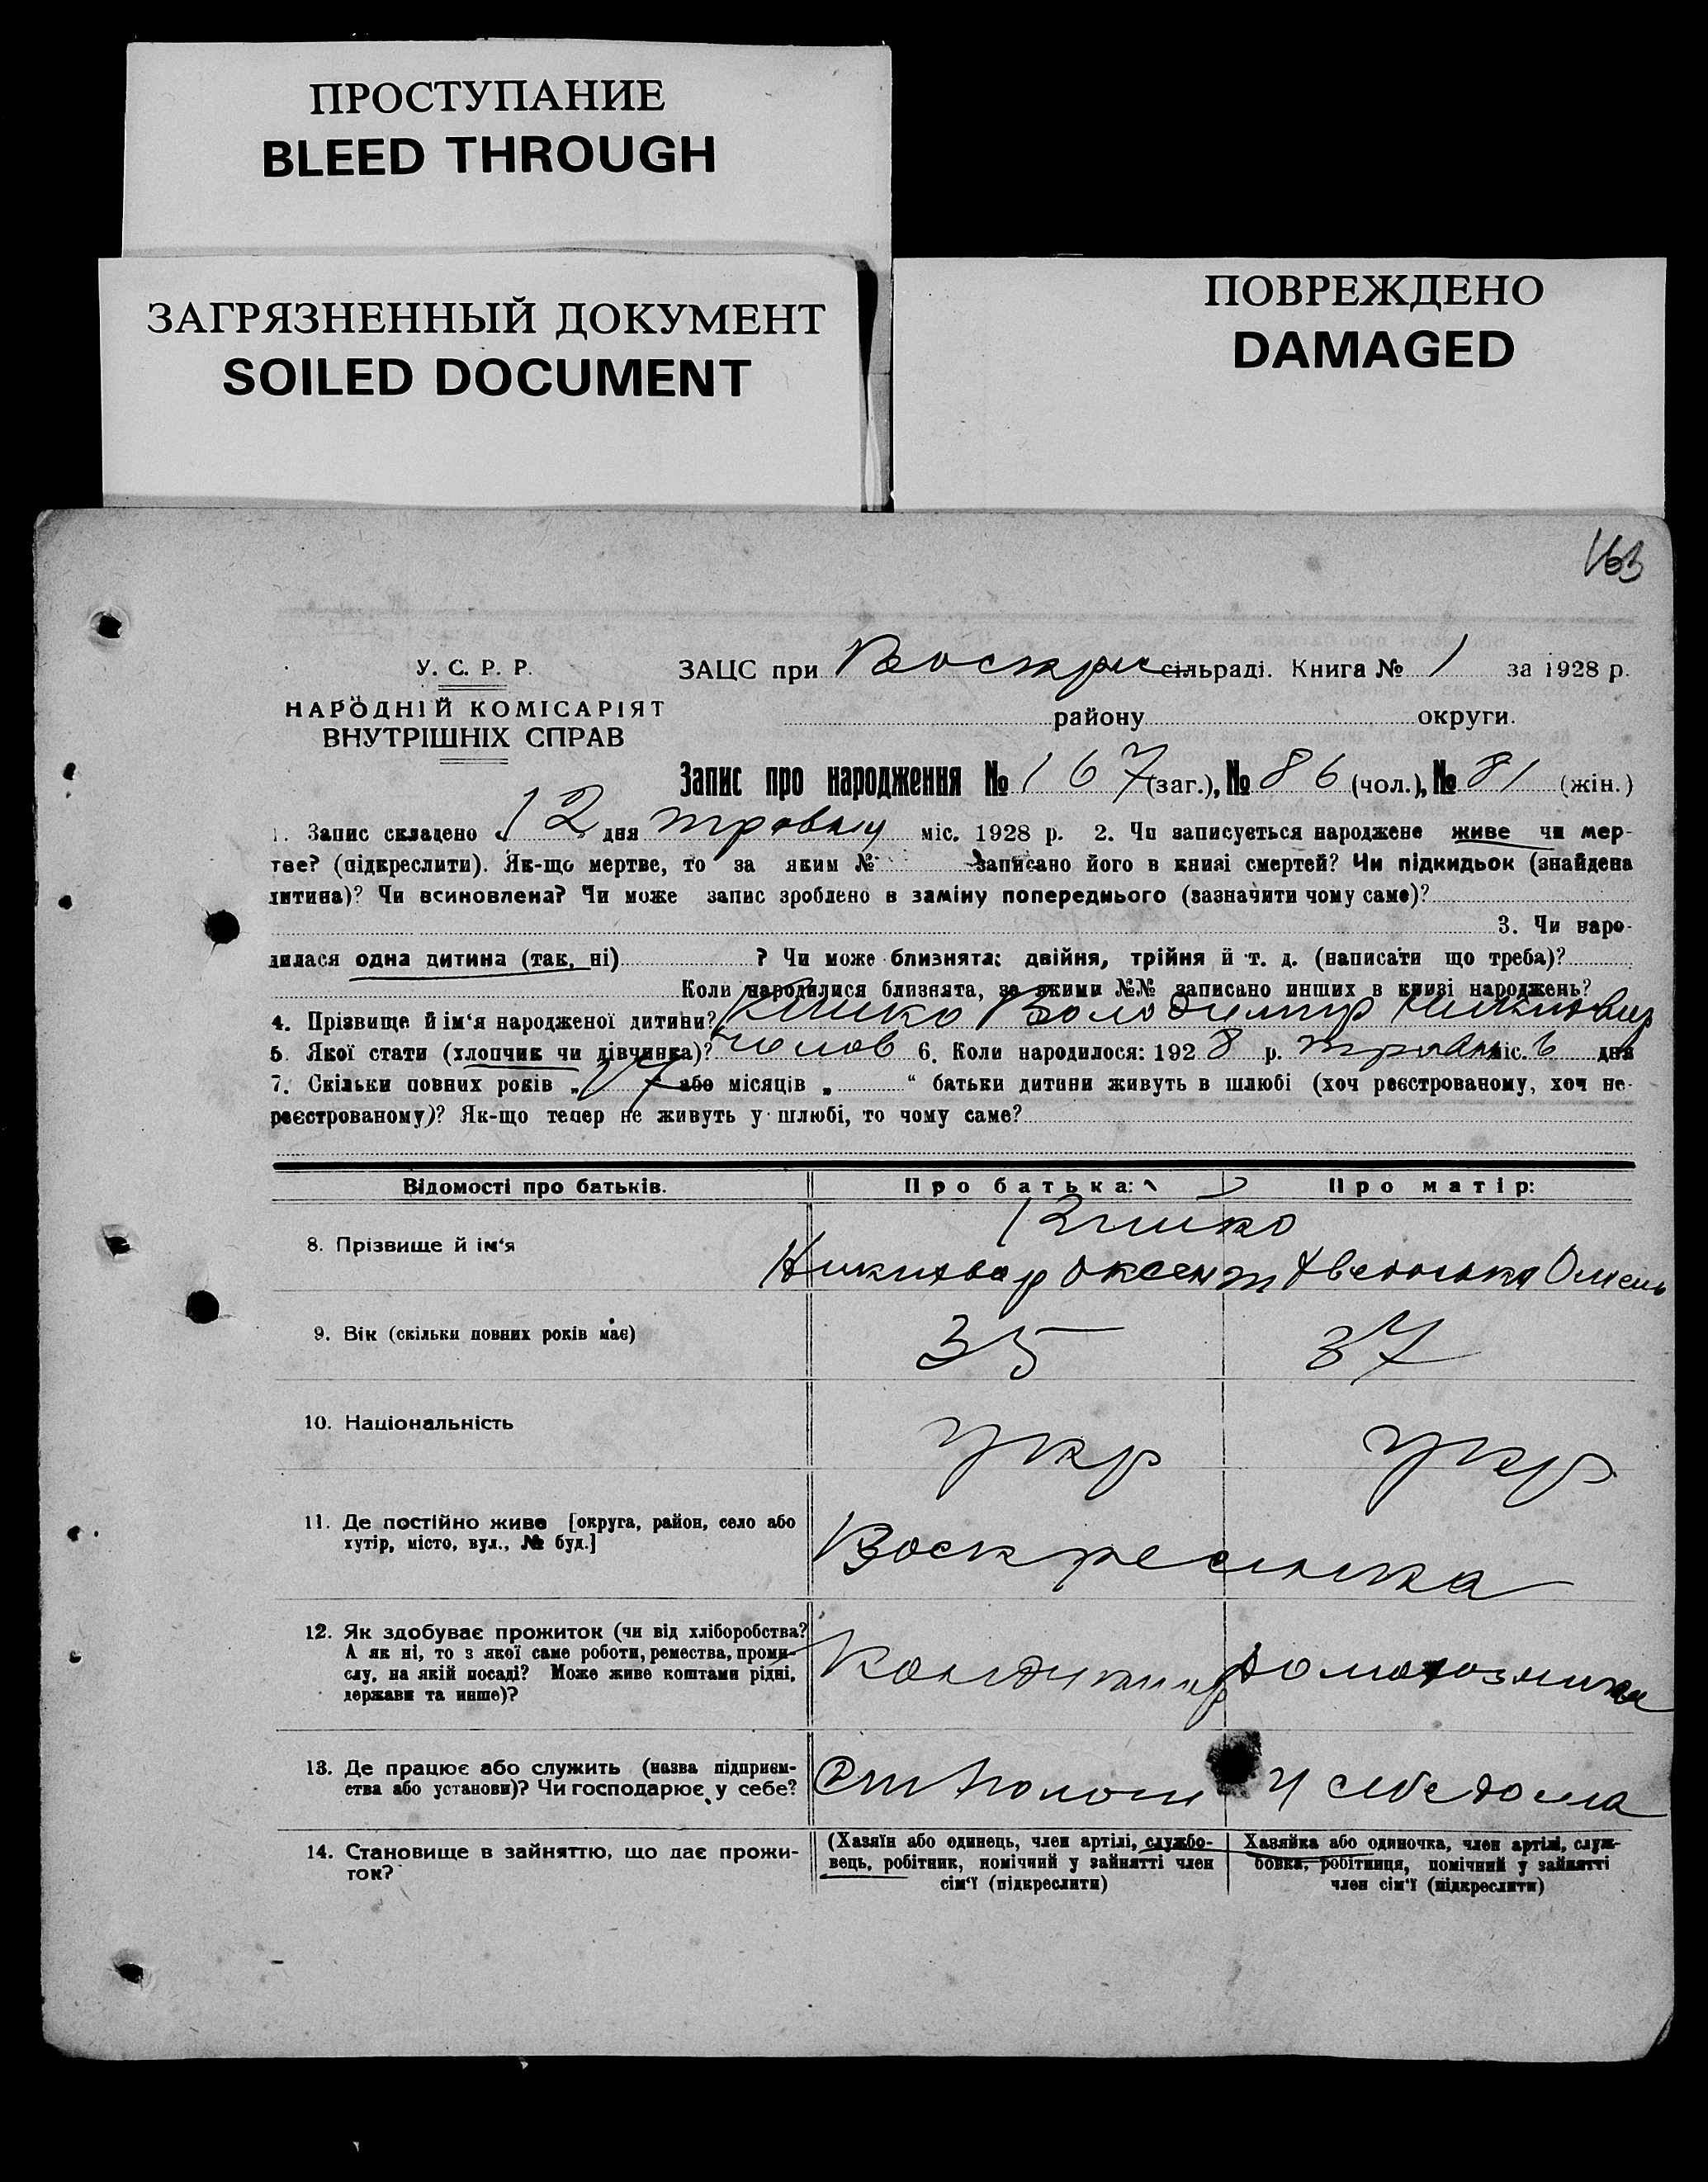 ПРОСТУПАНИЕ
BLEED THROUGH
ЗАГРЯЗНЕННЫЙ ДОКУМЕНТ
SOILED DOCUMENT
ПОВРЕЖДЕНО
DAMAGED
163
У. С. Р. Р.
НАРОДНІЙ КОМІСАРІЯТ
ВНУТРІШНІХ СПРАВ
ЗАЦС при Воскре сільраді. Книга № 1 за 1928 р.
району округи.
Запис про народження № 167 (заг.), № 86 (чол.), № 81 (жін.)
1. Запис складено „12" дня травня міс. 1928 р. 2. Чи записується народжене живе чи мер-
тве? (підкреслити). Як-що мертве, то за яким № записано його в книзі смертей? Чи підкидьок (знайдена
дитина)? Чи всиновлена? Чи може запис зроблено в заміну попереднього (зазначити чому саме)?
3. Чи наро-
дилася одна дитина (так, ні) ? Чи може близнята: двійня, трійня й т. д. (написати що треба)?
Коли народилися близнята, за якими №№ записано инших в книзі народжень?
4. Прізвище й ім'я народженої дитини? Володимир
5. Якої стати (хлопчик чи дівчинка)? чолов 6. Коли народилося: 1928 р. травня міс. 6 дня
7. Скільки повних років „17 або місяців „ “ батьки дитини живуть в шлюбі (хоч реєстрованому, хоч не-
реєстрованому)? Як-що тепер не живуть у шлюбі, то чому саме?
Відомості про батьків. Про батька: Про матір:
8. Прізвище й ім'я
Никифор Оксент
9. Вік (скільки повних років має) 35 37
10. Національність укр укр
11. Де постійно живе [округа, район, село або
хутір, місто, вул., № буд.] Воскресенка
12. Як здобуває прожиток (чи від хліборобства?
А як ні, то з якої саме роботи, ремества, проми-
слу, на якій посаді? Може живе коштами рідні,
держави та инше)? Кондуктор домохозяйка
13. Де працює або служить (назва підприєм-
ства або установи)? Чи господарює у себе? У себе дома
14. Становище в зайняттю, що дає прожи-
ток?
(Хазяїн або одинець, член артілі, службо-
вець, робітник, помічний у зайнятті член
сім'ї (підкреслити)
Хазяйка або одиночка, член артілі, служ-
бовка, робітниця, помічний у зайнятті
член сім'ї (підкреслити)